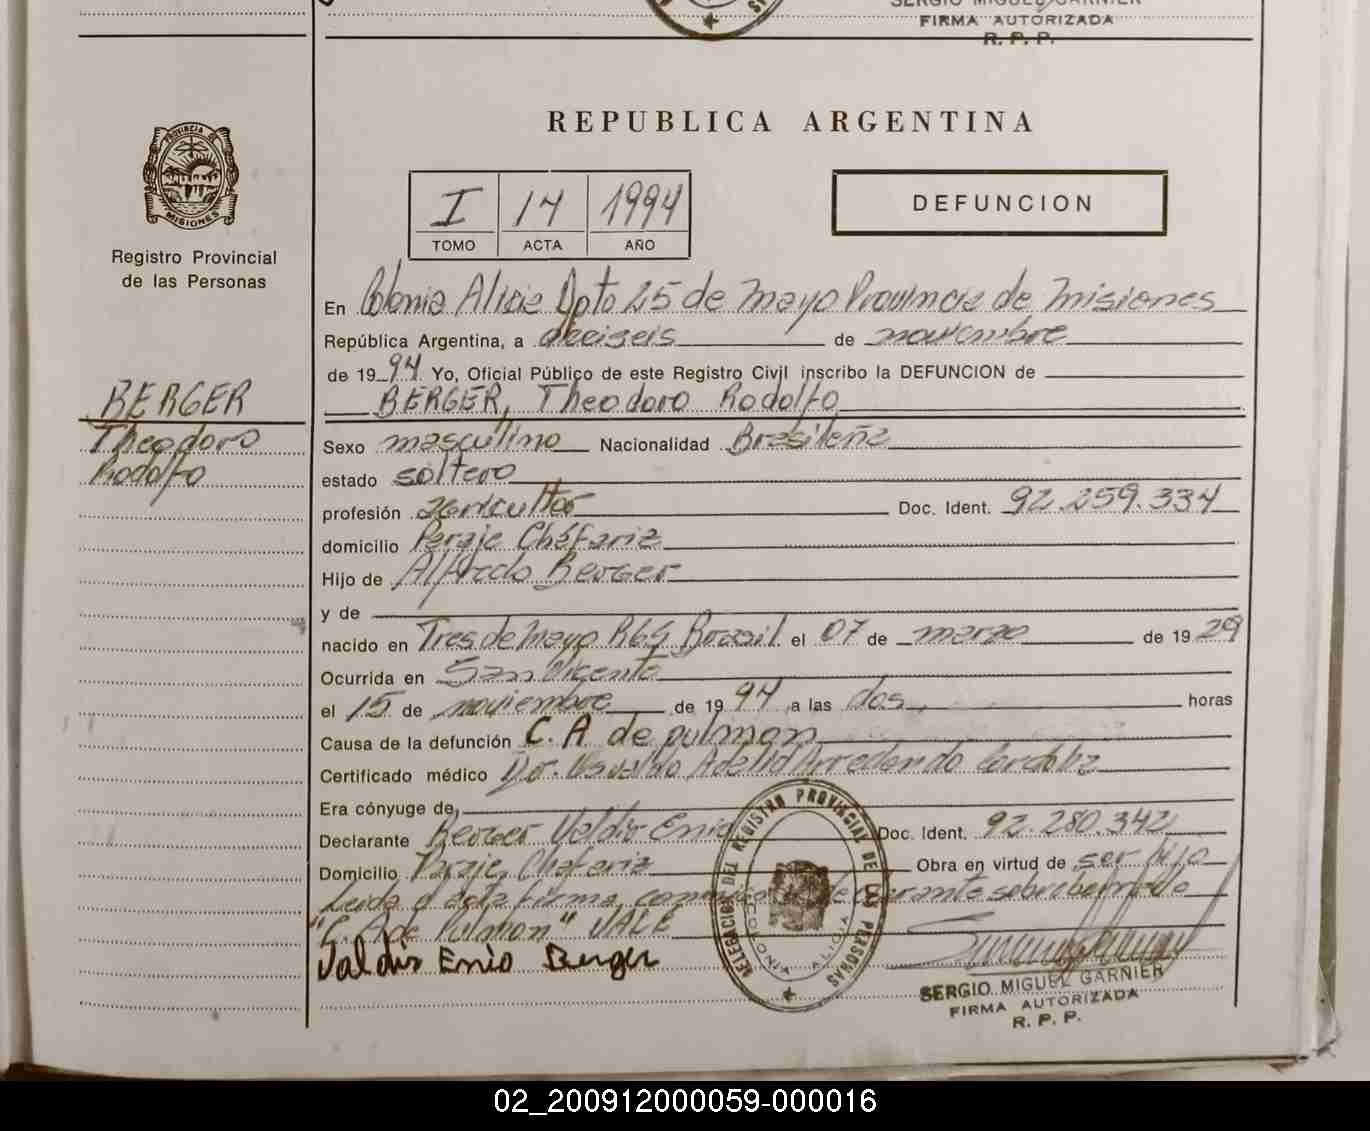 SERGIO MIGUEL GARNIER
FIRMA AUTORIZADA
R. P. P.
REPUBLICA ARGENTINA
PROVINCIA DE
MISIONES
Registro Provincial
de las Personas
I 14 1994
TOMO ACTA AÑO
DEFUNCION
En Colonia Alicia Dpto 25 de mayo Provincia de misiones
República Argentina, a dieciseis de noviembre
de 1994 Yo, Oficial Público de este Registro Civil inscribo la DEFUNCION de
BERGER, Theodoro Rodolfo
BERGER
Theodoro
Rodolfo
Sexo masculino Nacionalidad Brasileña
estado soltero
profesión agricultor Doc. Ident. 92.259.334
domicilio Paraje Chafariz
Hijo de Alfredo Berger
y de
nacido en Tres de mayo RGS Brasil el 07 de marzo de 1929
Ocurrida en San Vicente
el 15 de noviembre de 1994 a las dos horas
Causa de la defunción C. A de pulmon
Certificado médico Dr. Osvaldo Adelio Arredondo Cordoba
Era cónyuge de
Declarante Berger Valdir Enio Doc. Ident. 92.280.342
Domicilio Paraje Chafariz Obra en virtud de ser hijo
Leida el acta firma, conmigo el declarante sobreborrado
"C. A de Pulmon" VALE
Valdir Enio Berger
DELEGACION DEL REGISTRO PROVINCIAL DE LAS PERSONAS
COLONIA ALICIA
SERGIO MIGUEL GARNIER
FIRMA AUTORIZADA
R. P. P.
02_200912000059-000016